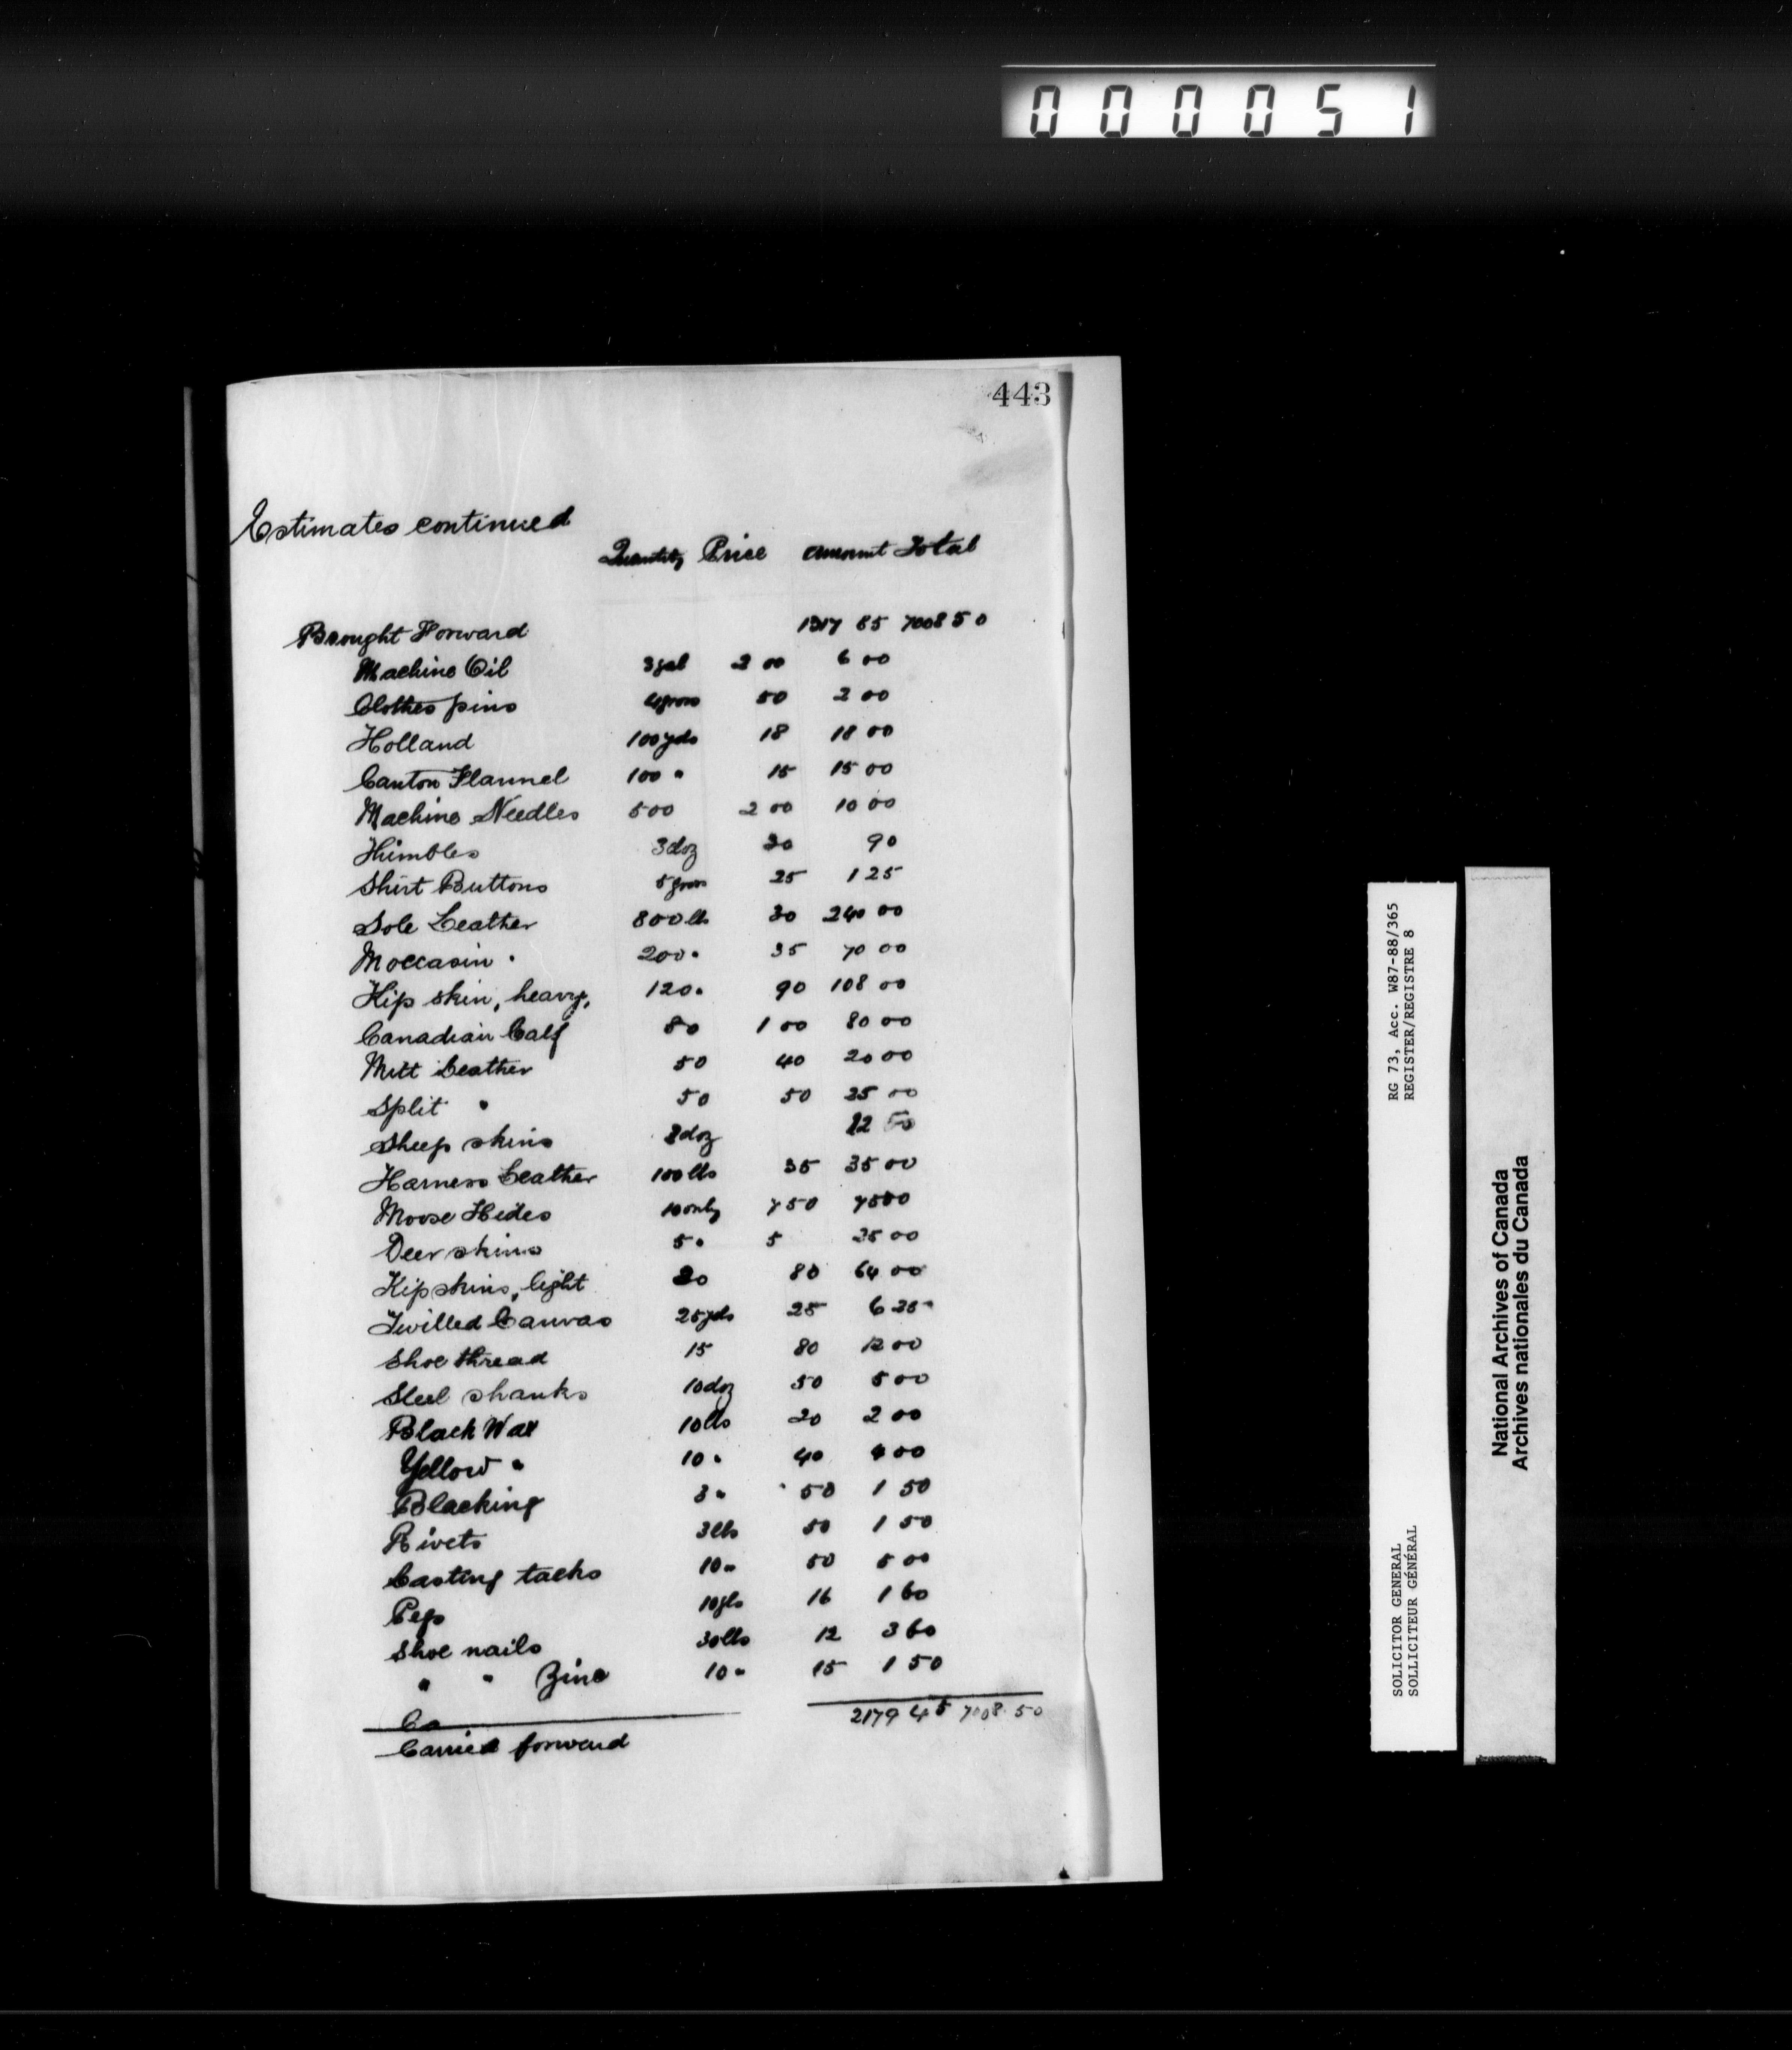 000051
443
Estimates continued
Quantity Price amount Total
Brought Forward 1317 85 7008 50
Machine Oil 3 gal 2 00 6 00
Clothes pins 4 gross 50 2 00
Holland 100 yds 18 18 00
Canton Flannel 100 " 15 15 00
Machine Needles 500 2 00 10 00
Thimbles 3 doz 30 90
Shirt Buttons 5 gross 25 1 25
Sole Leather 800 lbs 30 240 00
Moccasin " 200 " 35 70 00
Kip skin, heavy, 120 " 90 108 00
Canadian Calf 80 1 00 80 00
Mitt Leather 50 40 20 00
Split " 50 50 25 00
Sheep skins 3 doz 12 50
Harness Leather 100 lbs 35 35 00
Moose Hides 10 only 7 50 75 00
Deer skins 5 " 5 25 00
Kip skins, light 80 64 00
Twilled Canvas 25 yds 25 6 25
Shoe thread 15 80 12 00
Steel shanks 10 doz 50 5 00
Black Wax 10 lbs 20 2 00
Yellow " 10 " 40 4 00
Blacking 3 " 50 1 50
Rivets 3 lbs 50 1 50
Casting tacks 10 " 50 5 00
Pegs 16 1 60
Shoe nails 30 lbs 12 3 60
" " Zinc 10 " 15 1 50
Ca
2179 45 7008.50
Carried forward
RG 73, Acc. W87-88/365
REGISTER/REGISTRE 8
SOLICITOR GENERAL
SOLLICITEUR GÉNÉRAL
National Archives of Canada
Archives nationales du Canada